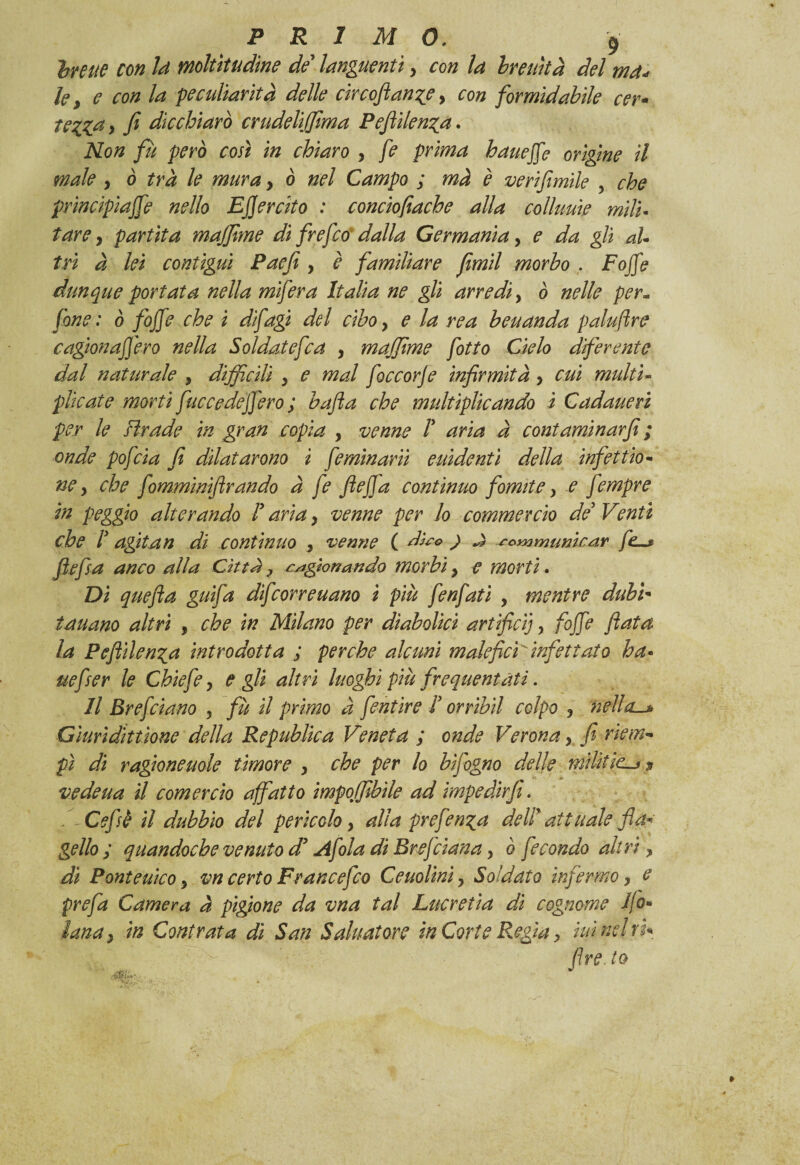 P R I M O. 9
breue con la moltitudine de' languenti, con la breuità del ma-
le, e con la peculiarità delle circoſtanze, con formidabile cer-
tezza, ſi dicchiarò crudeliſſima Peſtilenza.
Non fù però così in chiaro, ſe prima haueſſe origine il
male, ò trà le mura, ò nel Campo; mà è veriſimile, che
principiaſſe nello Eſſercito: concioſiache alla colluuie mili-
tare, partita maſſime di freſco dalla Germania, e da gli al-
tri à lei contigui Paeſi, è familiare ſimil morbo. Foſſe
dunque portata nella miſera Italia ne gli arredi, ò nelle per-
ſone: ò foſſe che i diſagi del cibo, e la rea beuanda paluſtre
cagionaſſero nella Soldateſca, maſſime ſotto Cielo diferente
dal naturale, difficili, e mal ſoccorſe infirmità, cui multi-
plicate morti ſuccedeſſero; baſta che multiplicando i Cadaueri
per le ſtrade in gran copia, venne l' aria à contaminarſi;
onde poſcia ſi dilatarono i ſeminarii euidenti della infettio-
ne, che ſomminiſtrando à ſe ſteſſa continuo fomite, e ſempre
in peggio alterando l' aria, venne per lo commercio de' Venti
che l' agitan di continuo, venne ( dico ) à communicar ſe
ſteſsa anco alla Città, cagionando morbi, e morti.
Di queſta guiſa diſcorreuano i più ſenſati, mentre dubi-
tauano altri, che in Milano per diabolici artificij, foſſe ſtata
la Peſtilenza introdotta; perche alcuni malefici infettato ha-
ueſser le Chieſe, e gli altri luoghi più frequentati.
Il Breſciano, fù il primo à ſentire l' orribil colpo, nella
Giuridittione della Republica Veneta; onde Verona, ſi riem-
pì di ragioneuole timore, che per lo biſogno delle militie,
vedeua il comercio affatto impoſſibile ad impedirſi.
Ceſsè il dubbio del pericolo, alla preſenza dell' attuale fla-
gello; quandoche venuto d' Aſola di Breſciana, ò ſecondo altri,
di Ponteuico, vn certo Franceſco Ceuolini, Soldato infermo, e
preſa Camera à pigione da vna tal Lucretia di cognome Iſo-
lana, in Contrata di San Saluatore in Corte Regia, iui nel ri-
ſtre. to